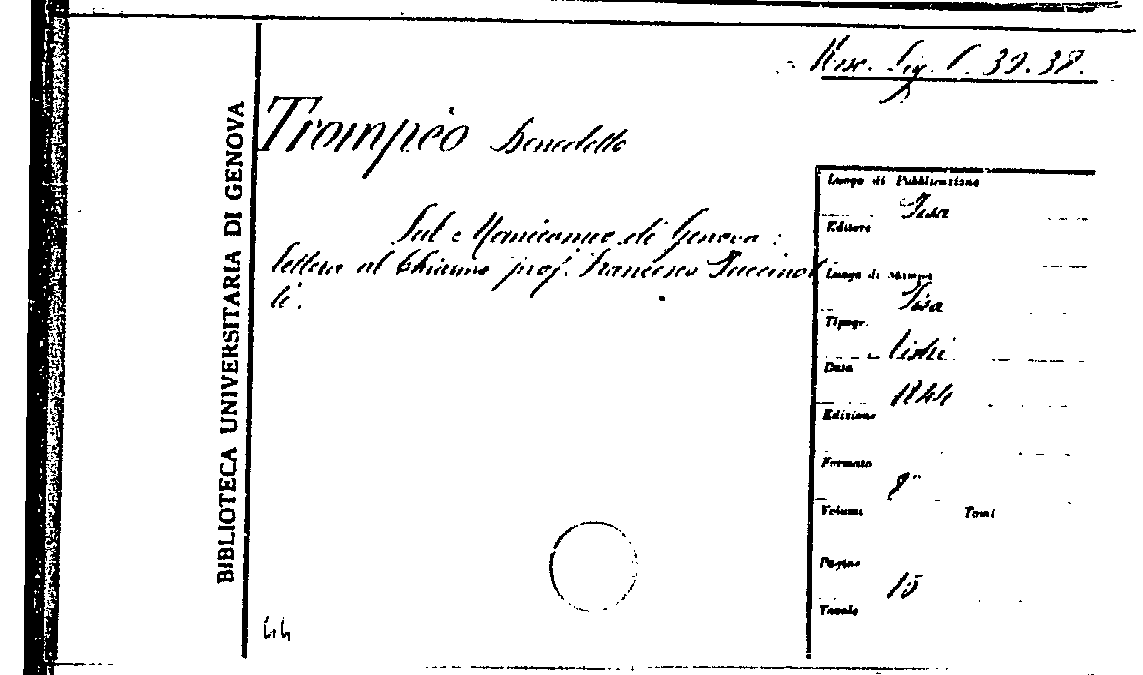 Misc. Lig. C. 39. 38.
BIBLIOTECA UNIVERSITARIA DI GENOVA
Trompèo Benedetto
Sul Manicomio di Genova :
lettera al Chiarmo prof. Francesco Puccinot
ti.
Luogo di Pubblicazione
Pisa
Editore
Luogo di Stampa
Pisa
Tipogr.
Data
1844
Edizione
Formato
8°
Volumi Tomi
Pagine
15
Tavole
44